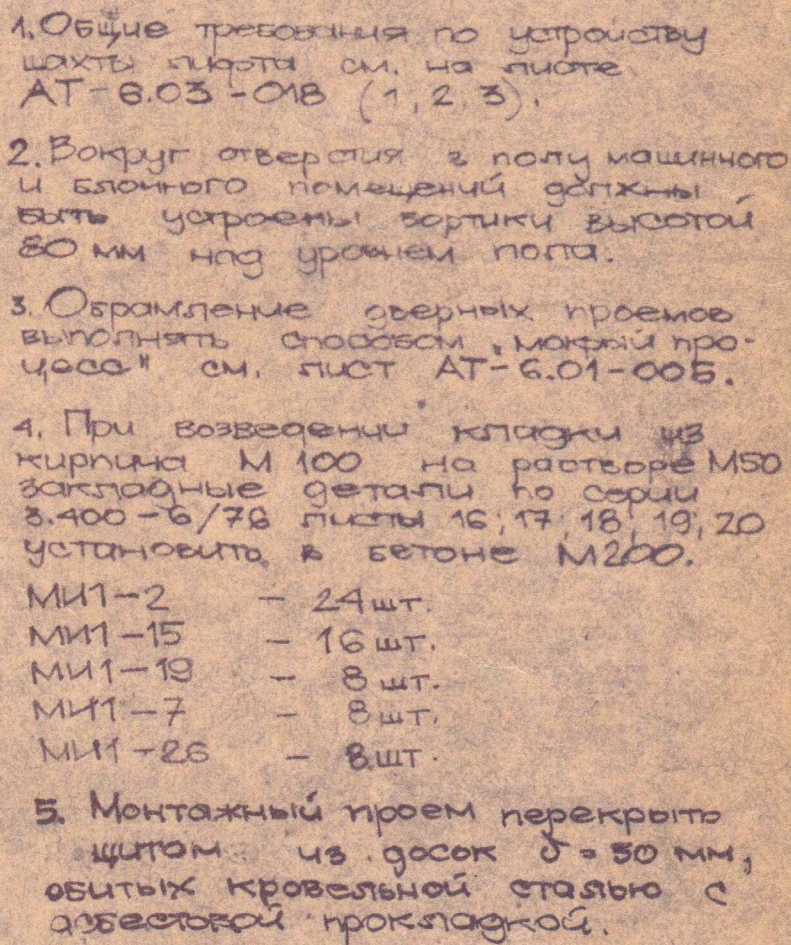 1. Общие требования по устройству
шахты лифта см. на листе
АТ-6.03-018 (1, 2, 3).
2. Вокруг отверстия в полу машинного
и блочного помещений должны
быть устроены бортики высотой
80 мм над уровнем пола.
3. Обрамление дверных проемов
выполнять способом „мокрый про-
цесс" см. лист АТ-6.01-005.
4. При возведении кладки из
кирпича М 100 на растворе М50
закладные детали по серии
3.400-6/76 листы 16; 17; 18; 19; 20
установить в бетоне М200.
МИ1-2 - 24 шт.
МИ1-15 - 16 шт.
МИ1-19 - 8 шт.
МИ1-7 - 8 шт.
МИ1-26 - 8 шт.
5. Монтажный проем перекрыть
щитом из досок δ=50 мм,
обитых кровельной сталью с
асбестовой прокладкой.